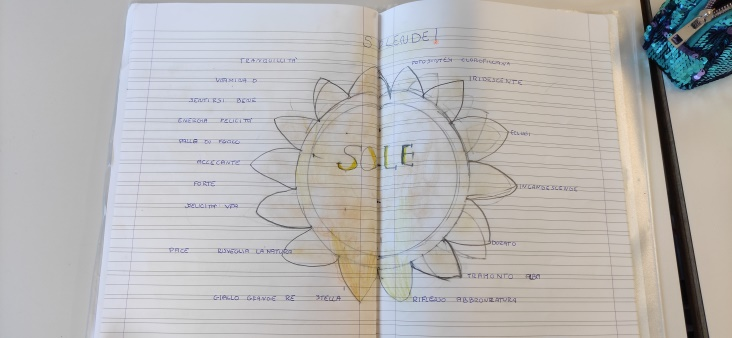 SPLENDE!
TRANQUILLITÀ
VITAMINA D
SENTIRSI BENE
ENERGIA FELICITÀ
PALLE DI FUOCO
ACCECANTE
FORTE
FELICITÀ VERA
PACE RISVEGLIA LA NATURA
GIALLO GRANDE RE STELLA
SOLE
FOTOSINTESI CLOROFILLIANA
IRIDESCENTE
ECLISSI
INCANDESCENDE
DORATO
TRAMONTO ALBA
RIFLESSO ABBRONZATURA